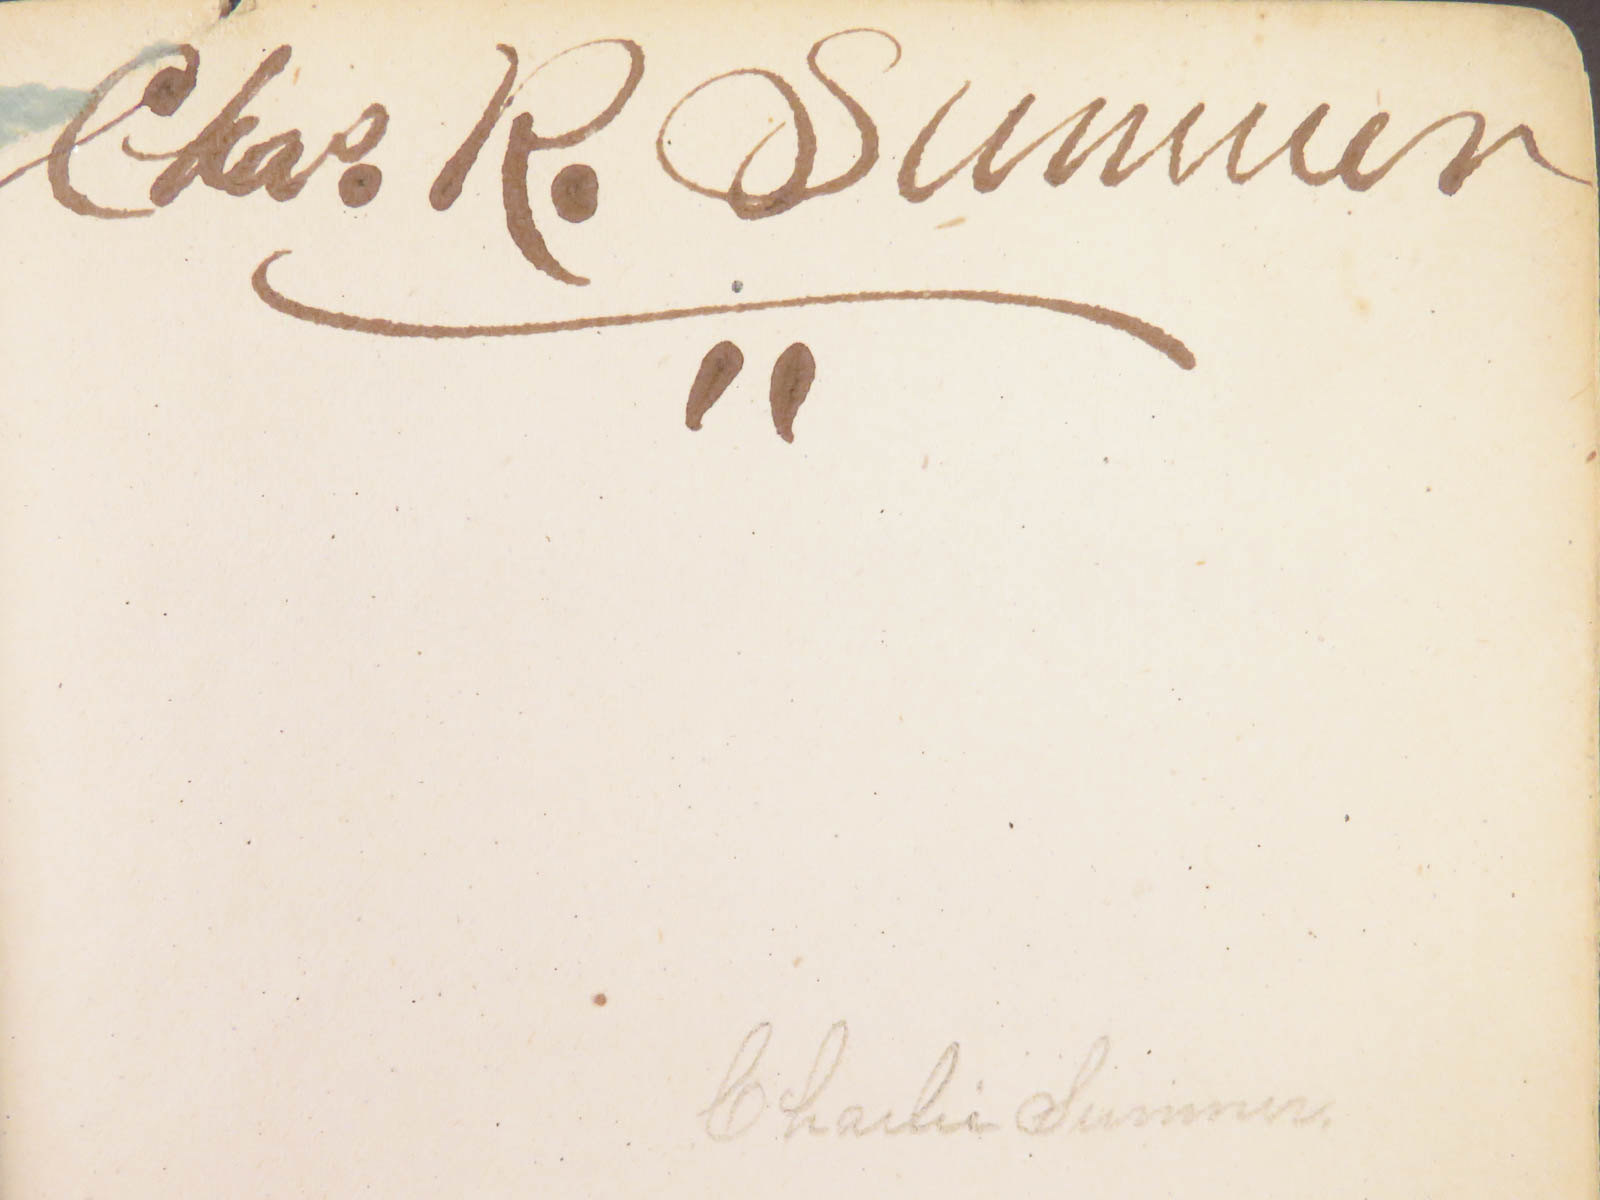 Chas. R. Sumner
"
Charlie Sumner.